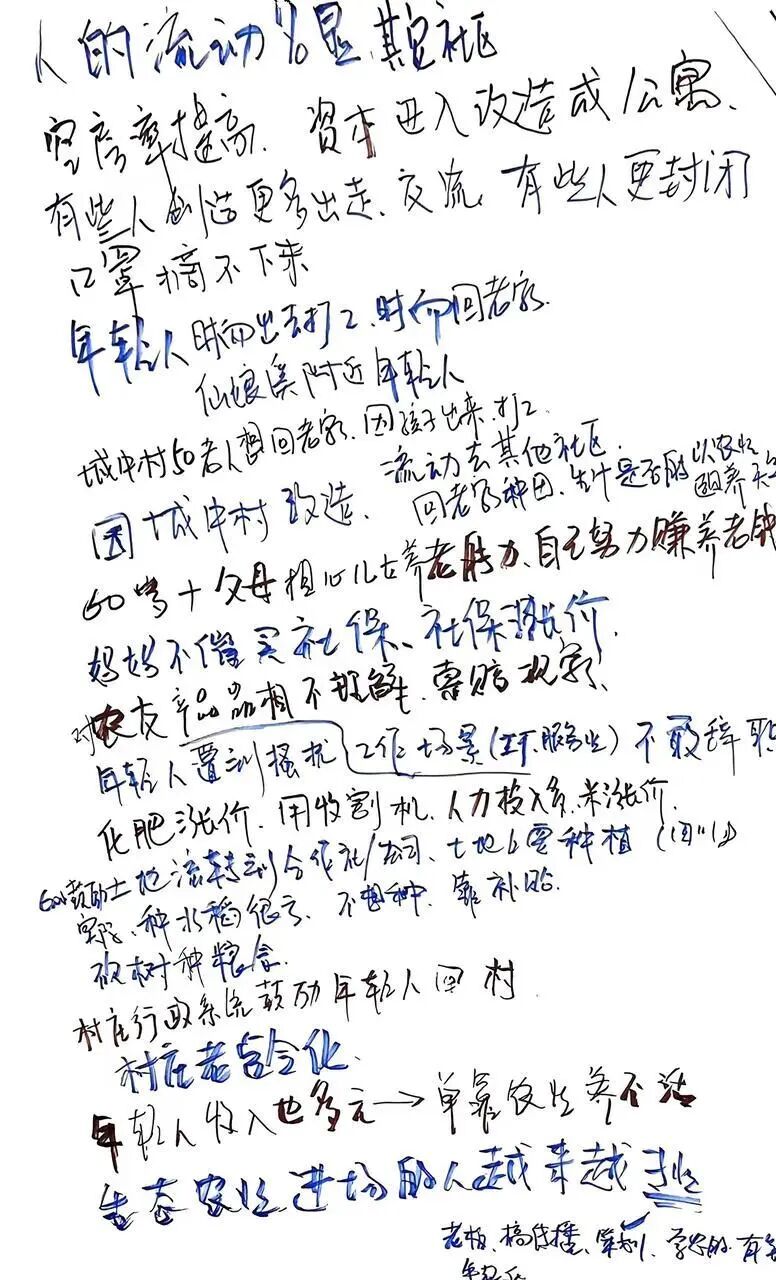 人的流动%显,其它社区
空房率提高、資本进入改造成公寓、
有些人创造更多出走、交流、有些人更封闭
口罩摘不下来
年轻人时而出去打工、时而回老家.
仙娘溪附近年轻人
城中村50老人想回老家、因孩子出来打工
因城中村改造、流动去其他社区.
回老家种田、生计是否能以农业养
60岁+父母担心儿女养老能力、自己努力赚养老钱
妈妈不催买社保、社保涨价.
对农友产品品相不理解、索赔
年轻人遭到骚扰 工作场景(工厂.服务业)不敢辞职
化肥涨价、用收割机、人力投入多、米涨价.
鼓励土地流转到合作社/公司、土地上要种植(四川)
实际、种水稻很亏、不想种、靠补贴.
砍树种粮食.
村庄行政系统鼓励年轻人回村
村庄老龄化.
年轻人收入也多元→单靠农业养不活
生态农业进场的人越来越
老板、搞直播、